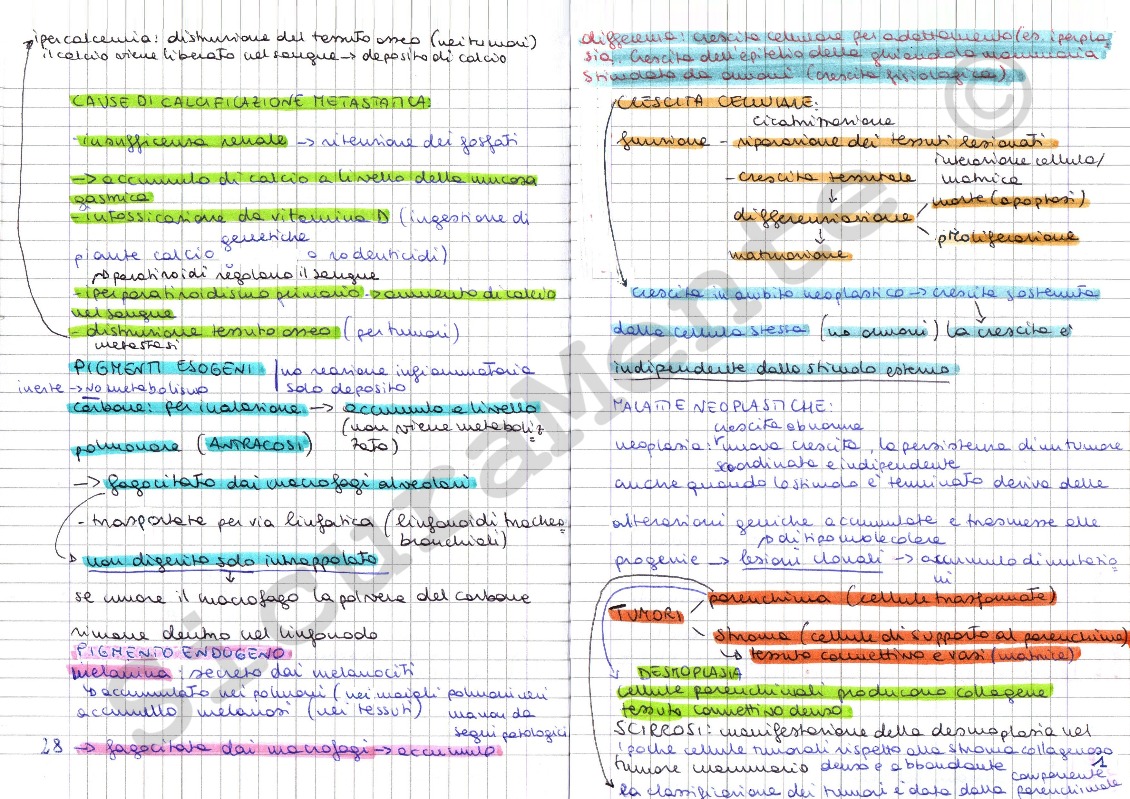 ipercalcemia: distruzione del tessuto osseo (nei tumori)
il calcio viene liberato nel sangue → deposito di calcio
CAUSE DI CALCIFICAZIONE METASTATICA:
- insufficenza renale → ritenzione dei fosfati
→ accumulo di calcio a livello della mucosa
gastrica
- intossicazione da vitamina D (ingestione di
genetiche
piante calcio o rodenticidi)
paratiroidi regolano il sangue
- iperparatiroidismo primario → aumento di calcio
nel sangue
- distruzione tessuto osseo (per tumori)
metastasi
PIGMENTI ESOGENI | no reazione infiammatoria
inerte → No metabolismo | solo deposito
carbone: per inalazione → accumulo a livello
(non viene metaboliz
polmonare (ANTRACOSI) zato)
→ fagocitato dai macrofagi alveolari
- trasportate per via linfatica (linfonoidi tracheo
bronchiali)
non digerito solo intrappolato
se muore il macrofago la polvere del carbone
rimane dentro nel linfonodo
PIGMENTO ENDOGENO
melanina: secreto dai melanociti
↳ accumulato nei polmoni (nei maiali polmoni neri
accumulo melanosi (nei tessuti) ma non da
segni patologici
28 → fagocitata dai macrofagi → accumulo
differenza: crescita cellulare per adattamento (es. iperpla
sia. Crescita dell'epitelio della ghiandola mammaria
stimolata da ormoni (crescita fisiologica)
CRESCITA CELLULARE:
cicatrizzazione
funzione - riparazione dei tessuti lesionati
interazione cellula/
- crescita tessutale matrice
↓ morte (apoptosi)
differenziazione
↓ proliferazione
maturazione
crescita in ambito neoplastico → crescita sostenuta
dalla cellula stessa (no ormoni) la crescita è
indipendente dallo stimolo esterno
MALATTIE NEOPLASTICHE:
crescita abnorme
neoplasia: nuova crescita, la persistenza di un tumore
scoordinata e indipendente
anche quando lo stimolo è terminato deriva delle
alterazioni geniche accumulate e trasmesse alle
↗ di tipo molecolare
progenie → lesioni clonali → accumulo di mutazio
ni
parenchima (cellule trasformate)
TUMORI
stroma (cellule di supporto al parenchima)
↳ tessuto connettivo e vasi (matrice)
DESMOPLASIA
cellule parenchimali producono collagene
tessuto connettivo denso
SCIRROSI: manifestazione della desmoplasia nel
poche cellule tumorali rispetto alla stroma collagenoso
tumore mammario denso e abbondante 1
componente
la classificazione dei tumori è data dalla parenchimale
SicuraMente ©